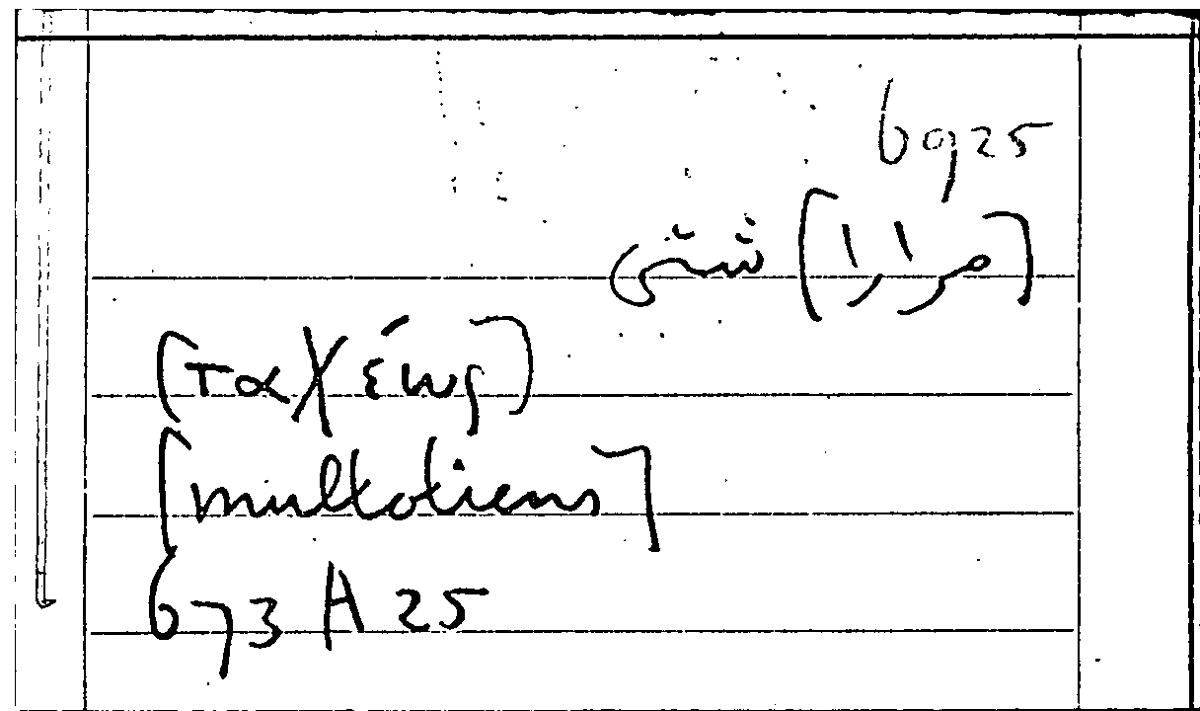 6925
[مرارا] شتّى
[ταχέως]
[multotiens]
673 A 25